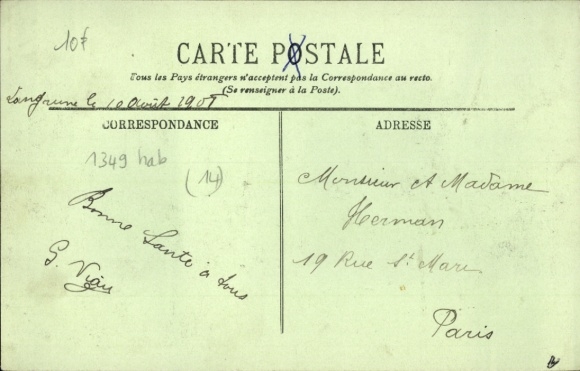 10f
CARTE POSTALE
Tous les Pays étrangers n'acceptent pas la Correspondance au recto.
(Se renseigner à la Poste).
Langrune le 10 Août 1905
CORRESPONDANCE
ADRESSE
1349 hab
(14)
Bonne Santé à tous
G.
Monsieur et Madame
Herman
19 Rue St Marc
Paris